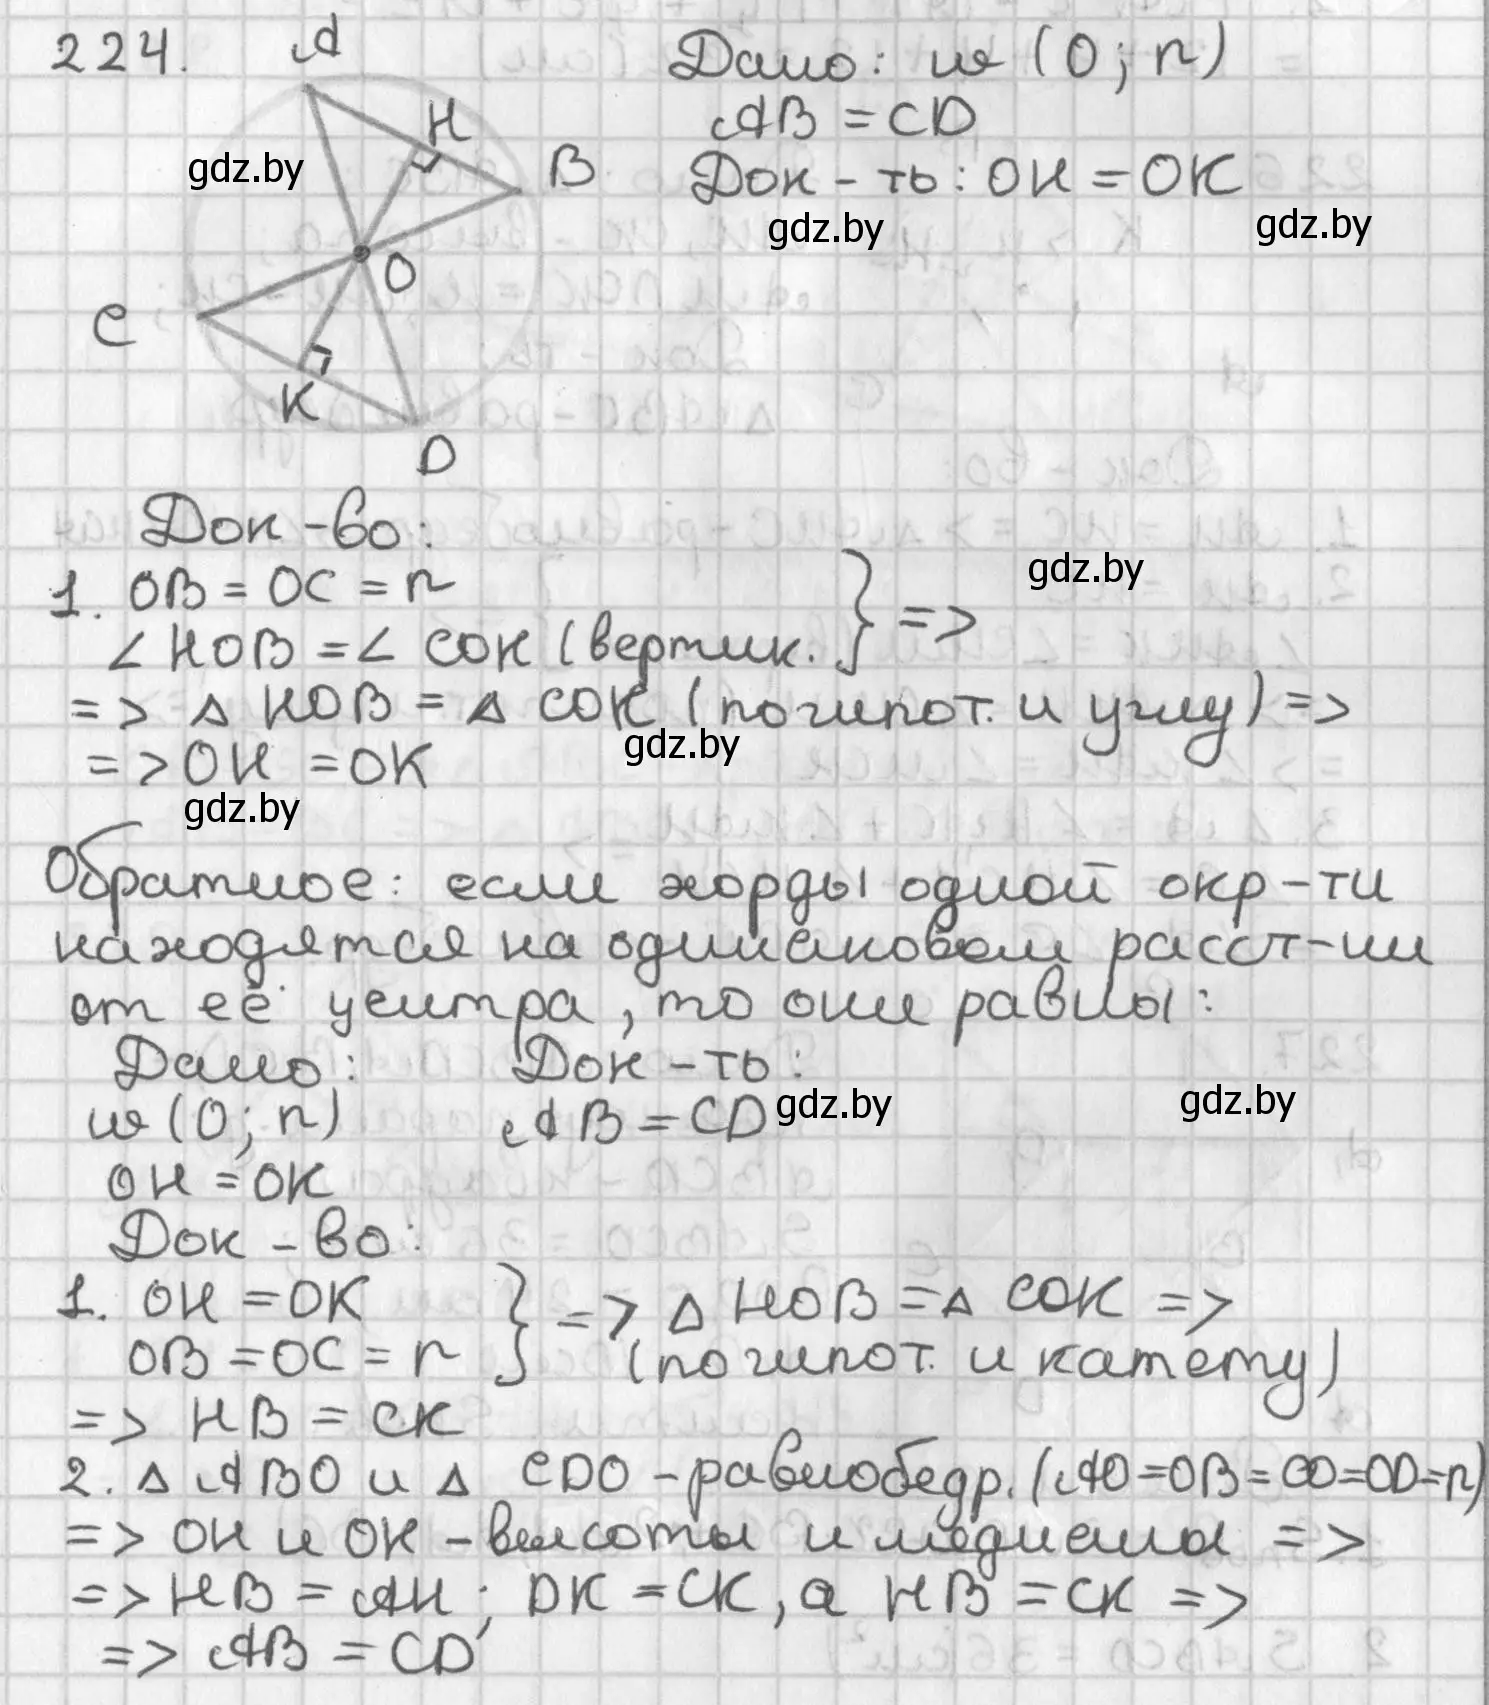 224.
A
H
B
O
C
K
D
Дано: w (O; r)
AB = CD
Док-ть: OH = OK
gdz.by
gdz.by
gdz.by
Док-во:
1. OB = OC = r
∠ HOB = ∠ COK (вертик. } =>
gdz.by
=> △ HOB = △ COK (по гипот. и углу) =>
gdz.by
=> OH = OK
gdz.by
Обратное: если хорды одной окр-ти
находятся на одинаковом расст-нии
от её центра, то они равны:
Дано: Док-ть:
w (O; r) AB = CD
gdz.by
gdz.by
OH = OK
Док-во:
1. OH = OK } => △ HOB = △ COK =>
OB = OC = r (по гипот. и катету)
=> HB = CK
2. △ ABO и △ CDO - равнобедр. (AO=OB=CO=OD=r)
=> OH и OK - высоты и медианы =>
=> HB = AH; DK = CK, а HB = CK =>
=> AB = CD